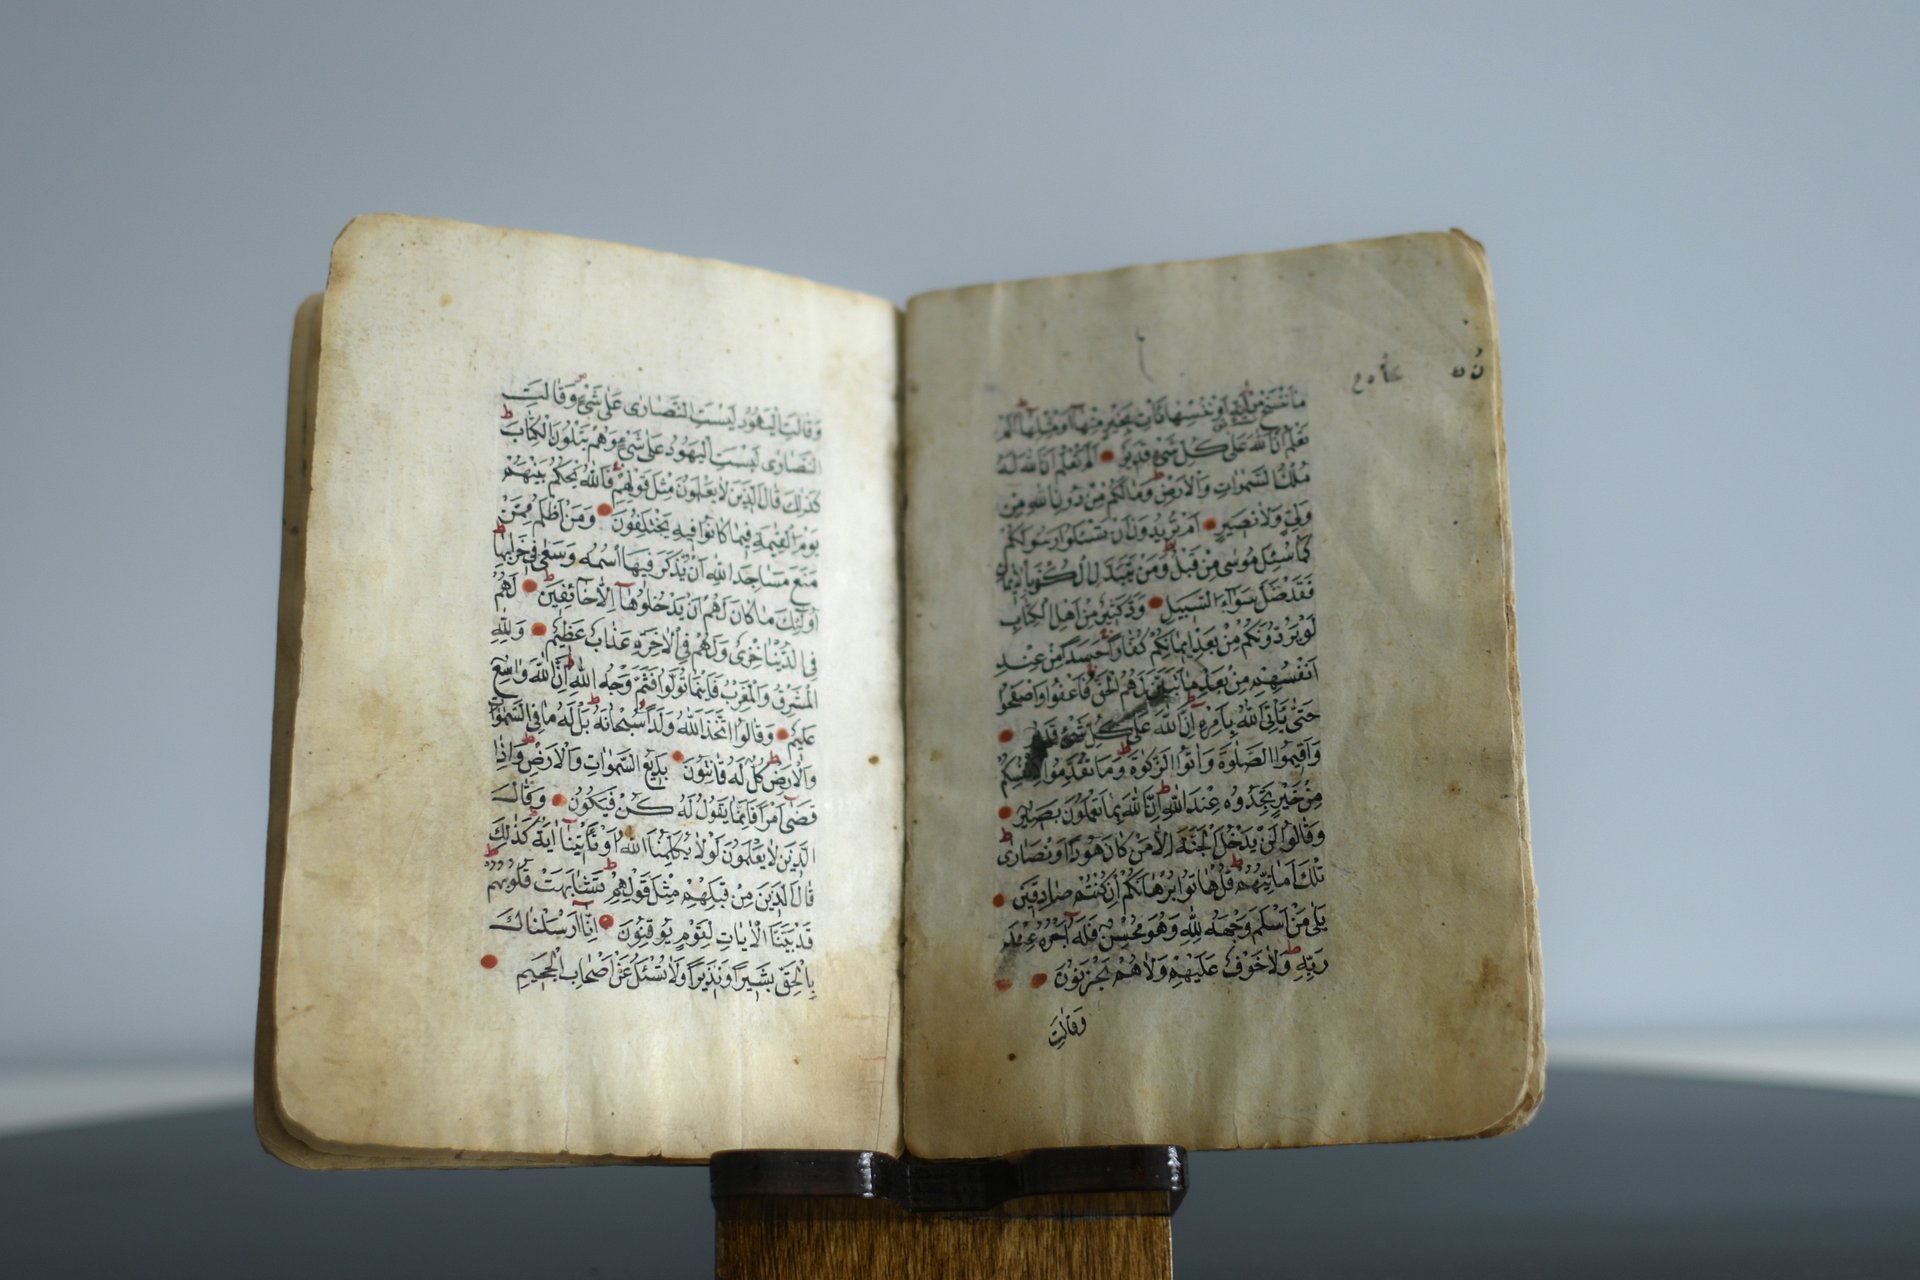 مَا نَنْسَخْ مِنْ اٰيَةٍ اَوْ نُنْسِهَا نَأْتِ بِخَيْرٍ مِنْهَا اَوْ مِثْلِهَا اَلَمْ
تَعْلَمْ اَنَّ اللهَ عَلٰى كُلِّ شَيْءٍ قَدِيرٌ اَلَمْ تَعْلَمْ اَنَّ اللهَ لَهُ
مُلْكُ السَّمٰوَاتِ وَالْاَرْضِ وَمَا لَكُمْ مِنْ دُونِ اللهِ مِنْ
وَلِيٍّ وَلَا نَصِيرٍ اَمْ تُرِيدُونَ اَنْ تَسْئَلُوا رَسُولَكُمْ
كَمَا سُئِلَ مُوسٰى مِنْ قَبْلُ وَمَنْ يَتَبَدَّلِ الْكُفْرَ بِالْاِيمَانِ
فَقَدْ ضَلَّ سَوَاءَ السَّبِيلِ وَدَّ كَثِيرٌ مِنْ اَهْلِ الْكِتَابِ
لَوْ يَرُدُّونَكُمْ مِنْ بَعْدِ اِيمَانِكُمْ كُفَّارًا حَسَدًا مِنْ عِنْدِ
اَنْفُسِهِمْ مِنْ بَعْدِ مَا تَبَيَّنَ لَهُمُ الْحَقُّ فَاعْفُوا وَاصْفَحُوا
حَتّٰى يَأْتِيَ اللهُ بِاَمْرِهِ اِنَّ اللهَ عَلٰى كُلِّ شَيْءٍ قَدِيرٌ
وَاَقِيمُوا الصَّلٰوةَ وَاٰتُوا الزَّكٰوةَ وَمَا تُقَدِّمُوا لِاَنْفُسِكُمْ
مِنْ خَيْرٍ تَجِدُوهُ عِنْدَ اللهِ اِنَّ اللهَ بِمَا تَعْمَلُونَ بَصِيرٌ
وَقَالُوا لَنْ يَدْخُلَ الْجَنَّةَ اِلَّا مَنْ كَانَ هُودًا اَوْ نَصَارٰى
تِلْكَ اَمَانِيُّهُمْ قُلْ هَاتُوا بُرْهَانَكُمْ اِنْ كُنْتُمْ صَادِقِينَ
بَلٰى مَنْ اَسْلَمَ وَجْهَهُ لِلّٰهِ وَهُوَ مُحْسِنٌ فَلَهُ اَجْرُهُ عِنْدَ
رَبِّهِ وَلَا خَوْفٌ عَلَيْهِمْ وَلَا هُمْ يَحْزَنُونَ
وَقَالَتِ
وَقَالَتِ الْيَهُودُ لَيْسَتِ النَّصَارٰى عَلٰى شَيْءٍ وَقَالَتِ
النَّصَارٰى لَيْسَتِ الْيَهُودُ عَلٰى شَيْءٍ وَهُمْ يَتْلُونَ الْكِتَابَ
كَذٰلِكَ قَالَ الَّذِينَ لَا يَعْلَمُونَ مِثْلَ قَوْلِهِمْ فَاللهُ يَحْكُمُ بَيْنَهُمْ
يَوْمَ الْقِيٰمَةِ فِيمَا كَانُوا فِيهِ يَخْتَلِفُونَ وَمَنْ اَظْلَمُ مِمَّنْ
مَنَعَ مَسَاجِدَ اللهِ اَنْ يُذْكَرَ فِيهَا اسْمُهُ وَسَعٰى فِي خَرَابِهَا
اُولٰئِكَ مَا كَانَ لَهُمْ اَنْ يَدْخُلُوهَا اِلَّا خَائِفِينَ لَهُمْ
فِي الدُّنْيَا خِزْيٌ وَلَهُمْ فِي الْاٰخِرَةِ عَذَابٌ عَظِيمٌ وَلِلّٰهِ
الْمَشْرِقُ وَالْمَغْرِبُ فَاَيْنَمَا تُوَلُّوا فَثَمَّ وَجْهُ اللهِ اِنَّ اللهَ وَاسِعٌ
عَلِيمٌ وَقَالُوا اتَّخَذَ اللهُ وَلَدًا سُبْحَانَهُ بَلْ لَهُ مَا فِي السَّمٰوَاتِ
وَالْاَرْضِ كُلٌّ لَهُ قَانِتُونَ بَدِيعُ السَّمٰوَاتِ وَالْاَرْضِ وَاِذَا
قَضٰى اَمْرًا فَاِنَّمَا يَقُولُ لَهُ كُنْ فَيَكُونُ وَقَالَ
الَّذِينَ لَا يَعْلَمُونَ لَوْلَا يُكَلِّمُنَا اللهُ اَوْ تَأْتِينَا اٰيَةٌ كَذٰلِكَ
قَالَ الَّذِينَ مِنْ قَبْلِهِمْ مِثْلَ قَوْلِهِمْ تَشَابَهَتْ قُلُوبُهُمْ
قَدْ بَيَّنَّا الْاٰيَاتِ لِقَوْمٍ يُوقِنُونَ اِنَّا اَرْسَلْنَاكَ
بِالْحَقِّ بَشِيرًا وَنَذِيرًا وَلَا تُسْئَلُ عَنْ اَصْحَابِ الْجَحِيمِ